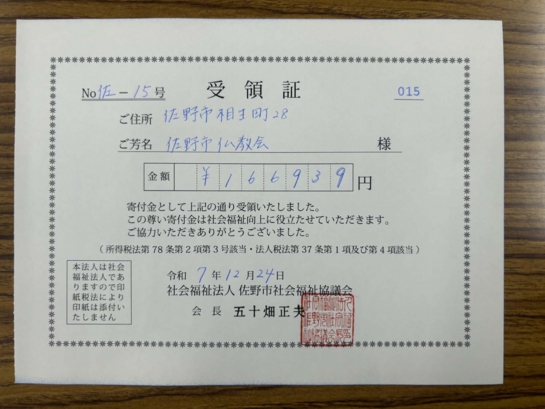 No 佐-15号
受領証
015
ご住所 佐野市相生町28
ご芳名 佐野市仏教会 様
金額 ¥166939円
寄付金として上記の通り受領いたしました。
この尊い寄付金は社会福祉向上に役立たせていただきます。
ご協力いただきありがとうございました。
(所得税法第78条第2項第3号該当・法人税法第37条第1項及び第4項該当)
本法人は社会
福祉法人であ
りますので印
紙税法により
印紙は添付い
たしません
令和 7年12月24日
社会福祉法人 佐野市社会福祉協議会
会長 五十畑正夫